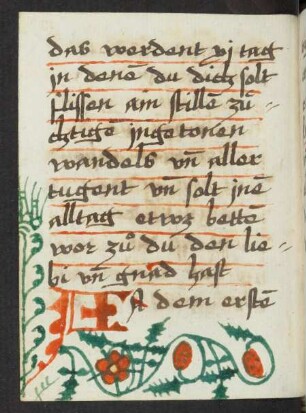 das werdent vj tag
jn denē du dich solt
flissen ain stillē zů-
chtigē jngetonen
wandels vn̄ aller
tugent vn̄ solt jnē
alltag etwz bettē
wor zů du den lie-
bi vn̄ gnad hast
A dem erstē